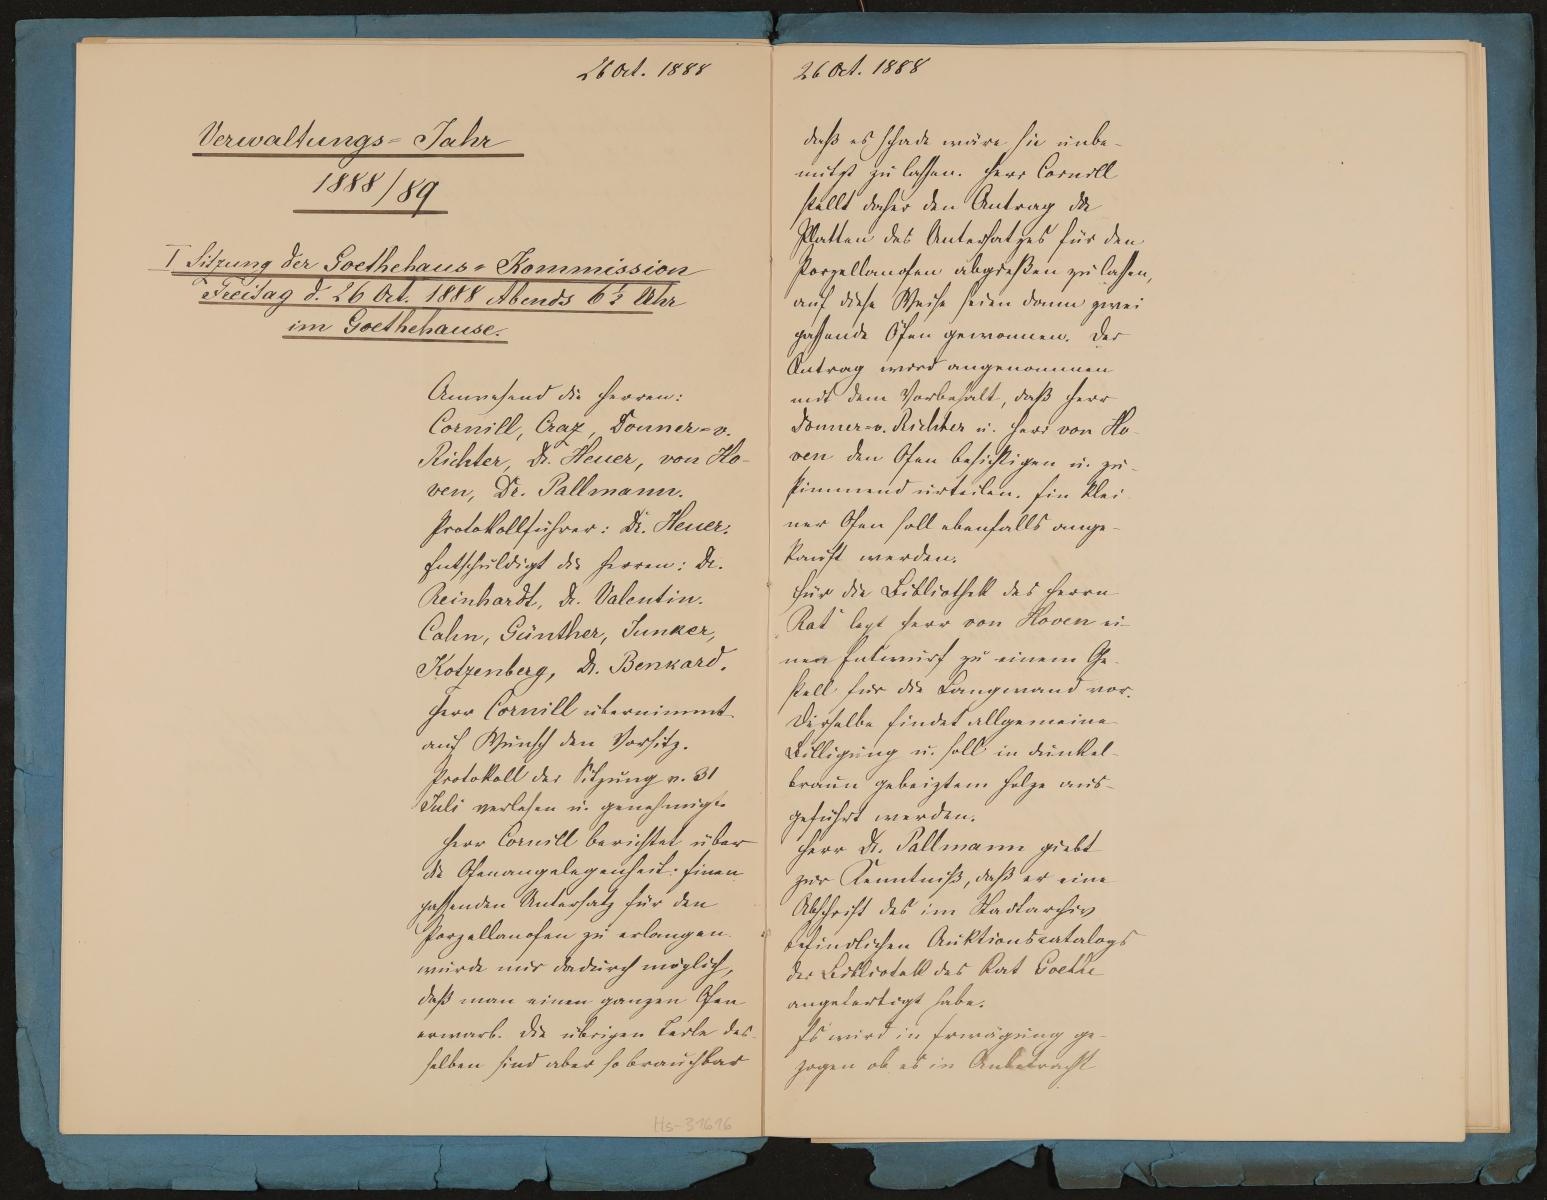 26 Oct. 1888
Verwaltungs= Jahr
1888/89
I Sitzung der Goethehaus= Kommission
Freitag d. 26 Oct. 1888 Abends 6½ Uhr
im Goethehause.
Anwesend die Herren:
Cornill, Craz, Donner=v.
Richter, Dr. Heuer, von Ho-
ven, Dr. Pallmann.
Protokollführer: Dr. Heuer.
Entschuldigt die Herren: Dr.
Reinhardt, Dr. Valentin.
Cahn, Günther, Junker,
Kotzenberg, Dr. Benkard.
Herr Cornill übernimmt
auf Wunsch den Vorsitz.
Protokoll der Sitzung v. 31
Juli verlesen u. genehmigt.
Herr Cornill berichtet über
die Ofenangelegenheit: Einen
passenden Untersatz für den
Porzellanofen zu erlangen
wurde nur dadurch möglich,
daß man einen ganzen Ofen
erwarb. Die übrigen Teile des-
selben sind aber so brauchbar
Hs-31616
26 Oct. 1888
daß es schade wäre sie unbe-
nutzt zu lassen. Herr Cornill
stellt daher den Antrag die
Platten des Untersatzes für den
Porzellanofen abgießen zu lassen,
auf diese Weise seien dann zwei
passende Öfen gewonnen. Der
Antrag wird angenommen
mit dem Vorbehalt, daß Herr
Donner=v. Richter u. Herr von Ho-
ven den Ofen besichtigen u. zu-
stimmend urteilen. Ein klei-
ner Ofen soll ebenfalls ange-
kauft werden.
Für die Bibliothek des Herrn
Rat legt Herr von Hoven ei-
nen Entwurf zu einem Ge-
stell für die Langwand vor.
Derselbe findet allgemeine
Billigung u. soll in dunkel-
braun gebeiztem Holze aus-
geführt werden.
Herr Dr. Pallmann giebt
zur Kenntniß, daß er eine
Abschrift des im Stadtarchiv
befindlichen Auktionscatalogs
der Bibliothek des Rat Goethe
angefertigt habe.
Es wird in Erwägung ge-
zogen ob es in Anbetracht